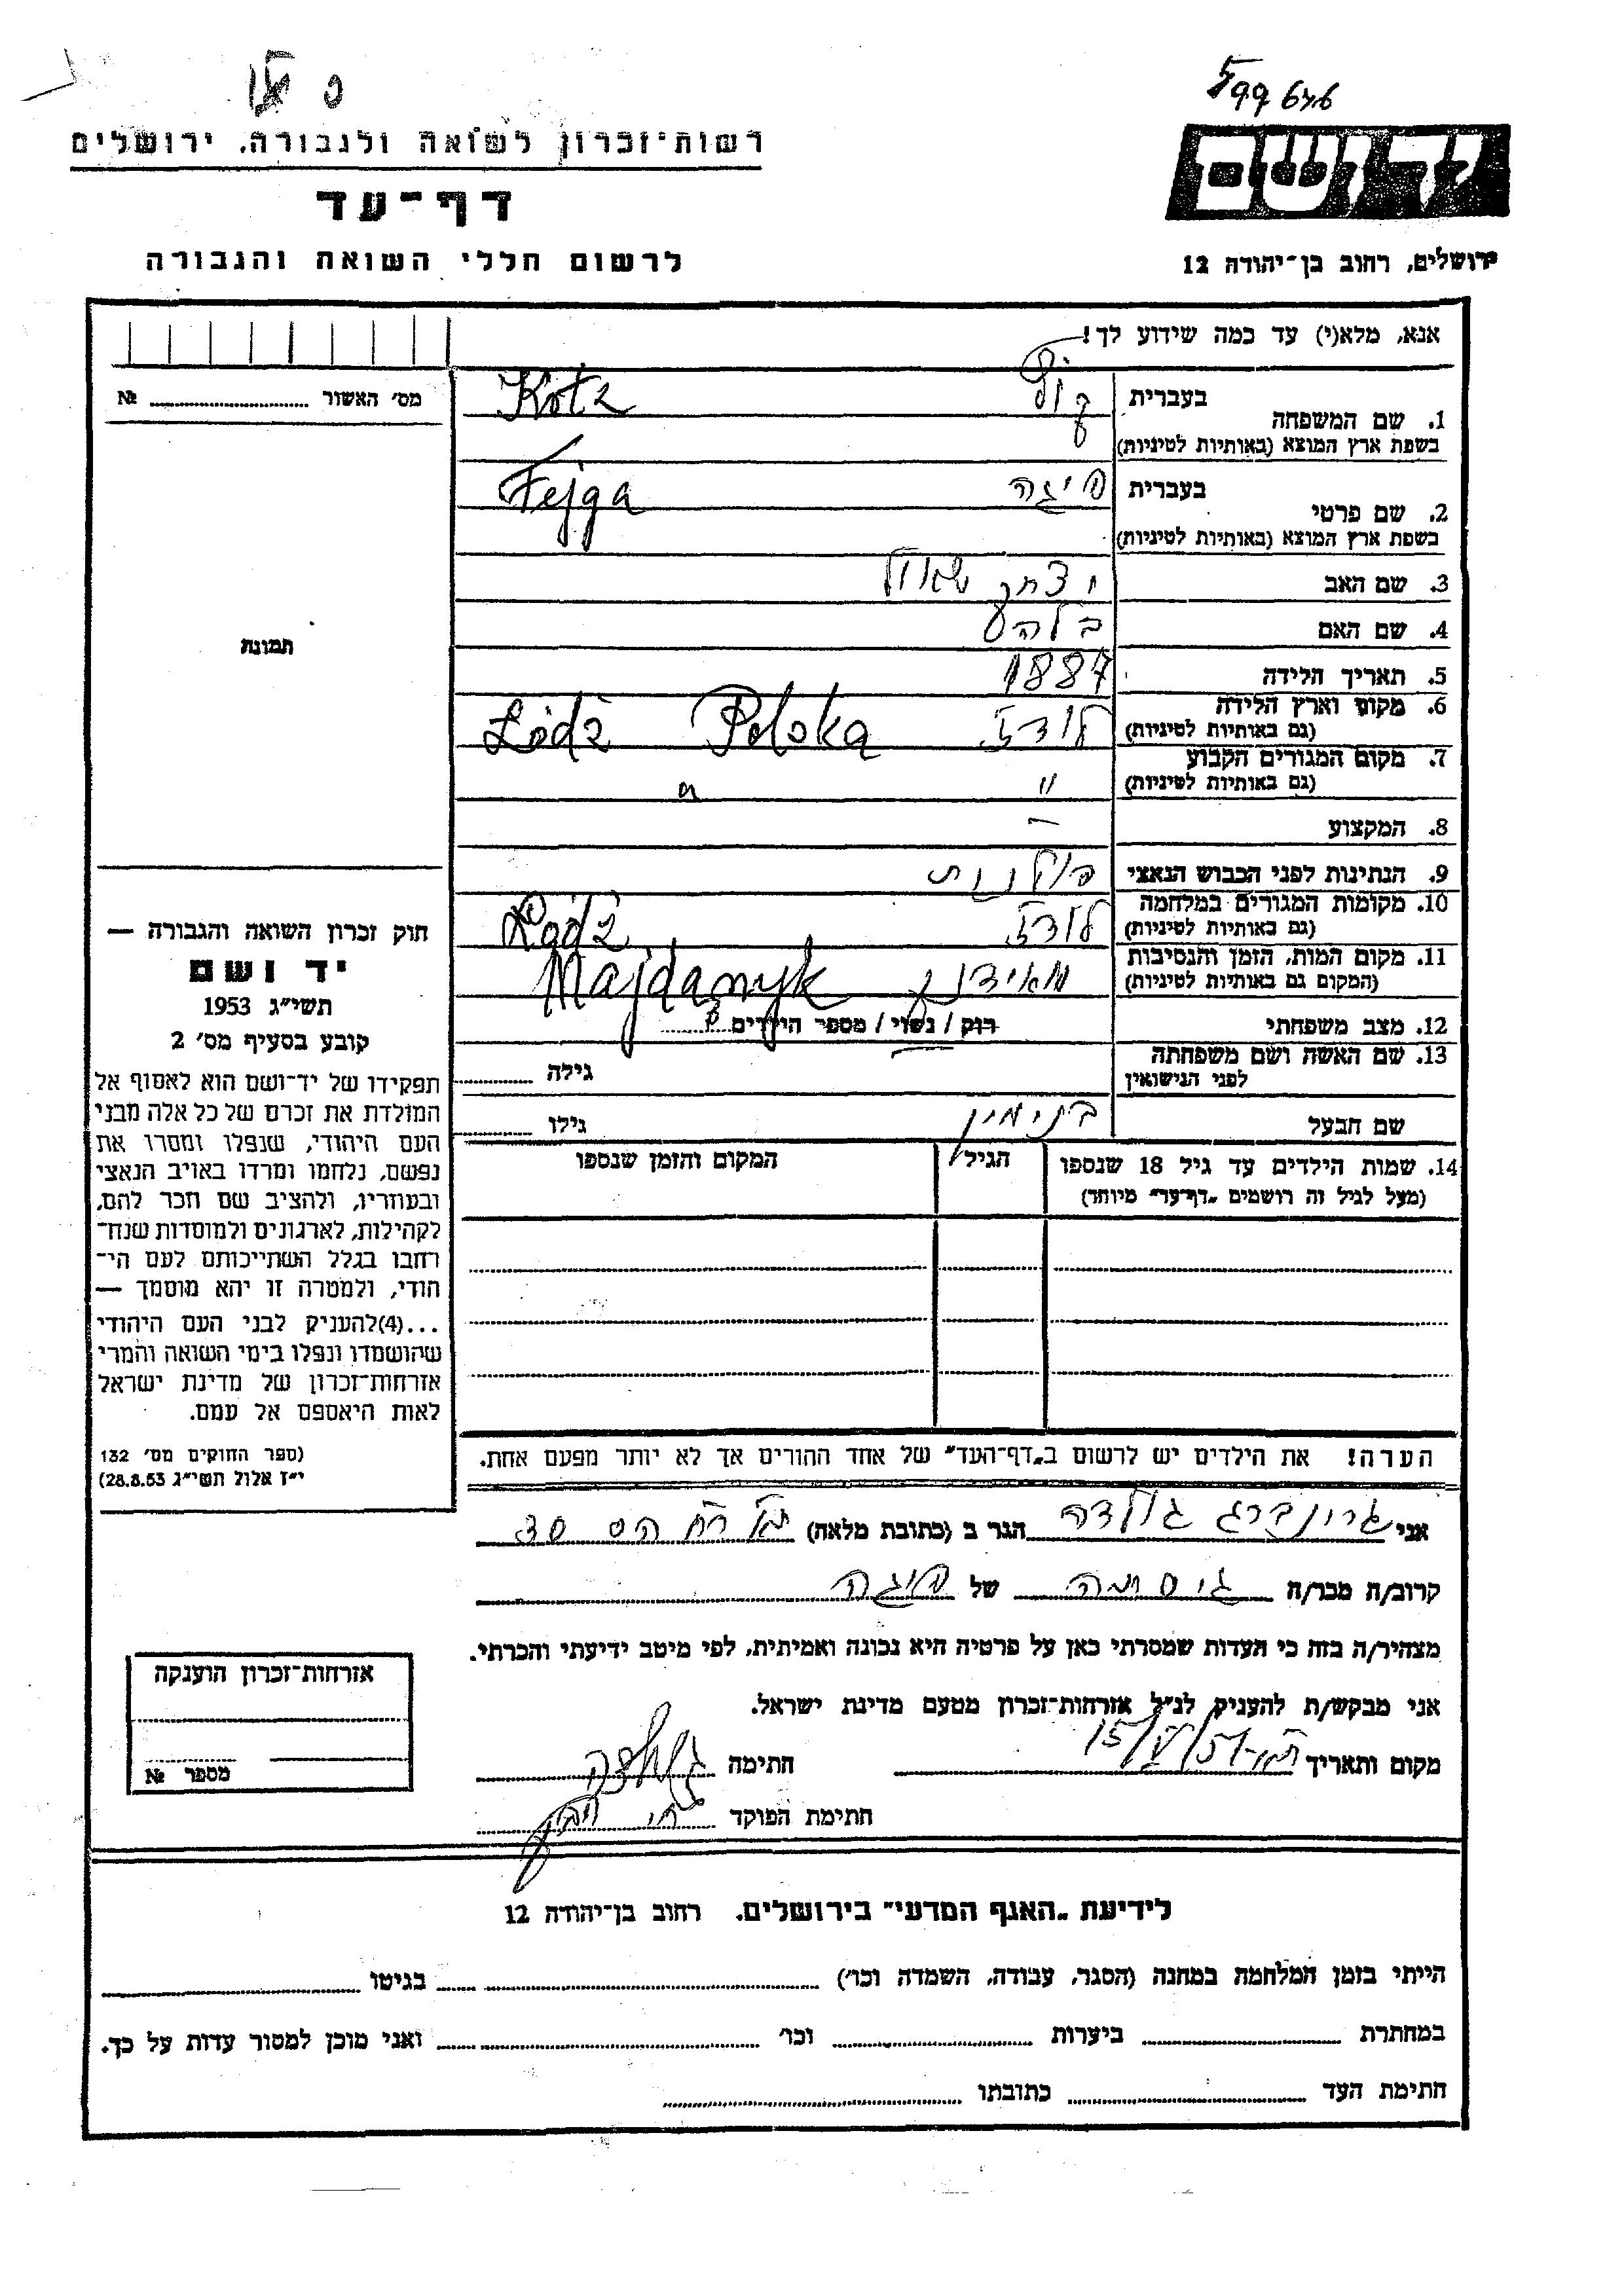 599646
יד ושם
ירושלים, רחוב בן־יהודה 12
רשות־זכרון לשואה ולגבורה, ירושלים
דף־עד
לרשום חללי השואה והגבורה
אנא, מלא(י) עד כמה שידוע לך!
1. שם המשפחה בעברית
בשפת ארץ המוצא (באותיות לטיניות) Kotz
2. שם פרטי בעברית פיגה
בשפת ארץ המוצא (באותיות לטיניות) Fejga
3. שם האב יצחק שאול
4. שם האם בלהע
5. תאריך הלידה 1887
6. מקום וארץ הלידה לודז Łódź Polska
(גם באותיות לטיניות)
7. מקום המגורים הקבוע " "
(גם באותיות לטיניות)
8. המקצוע —
9. הנתינות לפני הכבוש הנאצי פולנית
10. מקומות המגורים במלחמה לודז Łódź
(גם באותיות לטיניות)
11. מקום המות, הזמן והנסיבות מאידנק Majdanyk
(המקום גם באותיות לטיניות)
12. מצב משפחתי רוק / נשוי / מספר הילדים
13. שם האשה ושם משפחתה גילה
לפני הנישואין
שם הבעל בנימין גילו
14. שמות הילדים עד גיל 18 שנספו הגיל המקום והזמן שנספו
(מעל לגיל זה רושמים „דף־עד״ מיוחד)
הערה! את הילדים יש לרשום ב„דף־העד״ של אחד ההורים אך לא יותר מפעם אחת.
מס׳ האשור №
תמונה
חוק זכרון השואה והגבורה —
יד ושם
תשי״ג 1953
קובע בסעיף מס׳ 2
תפקידו של יד־ושם הוא לאסוף אל
המולדת את זכרם של כל אלה מבני
העם היהודי, שנפלו ומסרו את
נפשם, נלחמו ומרדו באויב הנאצי
ובעוזריו, ולהציב שם וזכר להם,
לקהילות, לארגונים ולמוסדות שנח־
רבו בגלל השתייכותם לעם הי־
הודי, ולמטרה זו יהא מוסמך —
...(4)להעניק לבני העם היהודי
שהושמדו ונפלו בימי השואה והמרי
אזרחות־זכרון של מדינת ישראל
לאות היאספם אל עמם.
(ספר החוקים מס׳ 132
י״ז אלול תשי״ג 28.8.53)
אני גרונברג גולדה הגר ב (כתובת מלאה)
קרוב/ה מכר/ה גיסתה של פיגה
מצהיר/ה בזה כי העדות שמסרתי כאן על פרטיה היא נכונה ואמיתית, לפי מיטב ידיעתי והכרתי.
אני מבקש/ת להעניק לנ״ל אזרחות־זכרון מטעם מדינת ישראל.
מקום ותאריך חתימה
חתימת הפוקד
אזרחות־זכרון הוענקה
מספר №
לידיעת „האגף המדעי״ בירושלים. רחוב בן־יהודה 12
הייתי בזמן המלחמה במחנה (הסגר, עבודה, השמדה וכו׳) בגיטו
במחתרת ביערות וכו׳ ואני מוכן למסור עדות על כך.
חתימת העד כתובתו